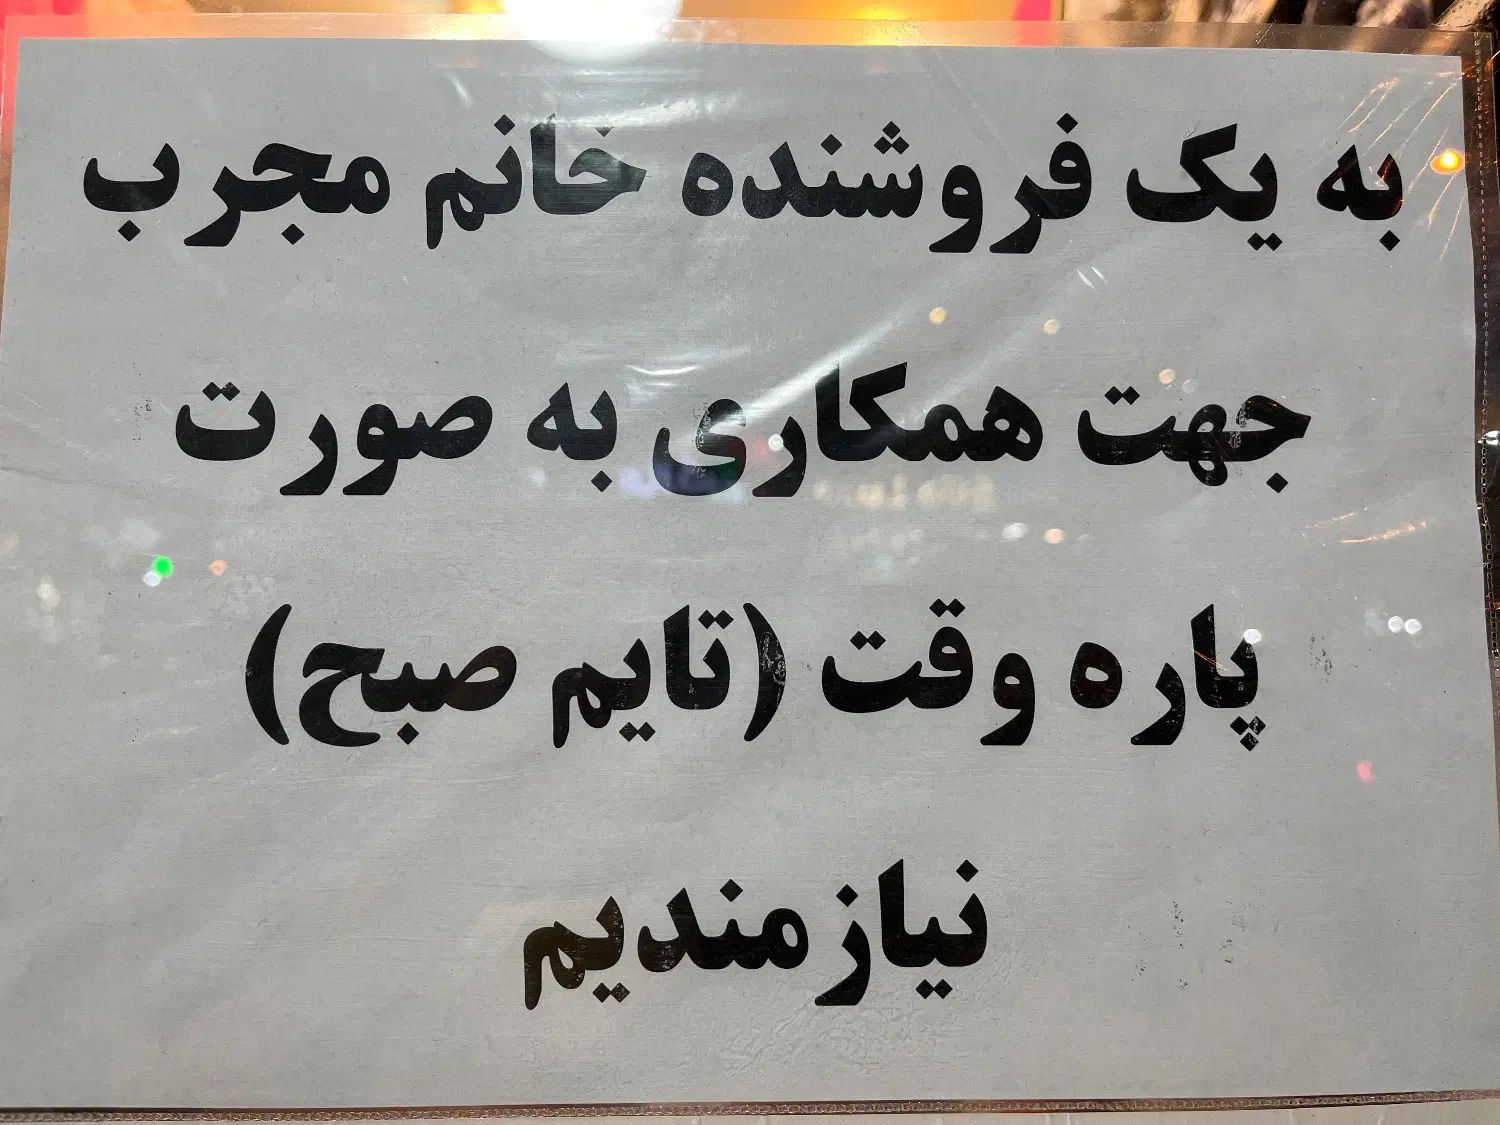 به یک فروشنده خانم مجرب
جهت همکاری به صورت
پاره وقت (تایم صبح)
نیازمندیم